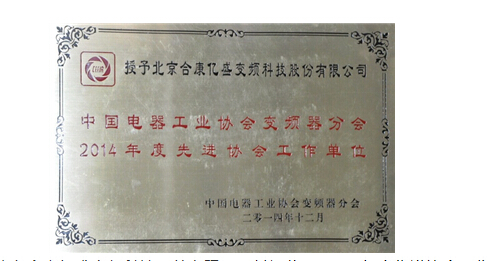 授予北京合康亿盛变频科技股份有限公司
中国电器工业协会变频器分会
2014年度先进协会工作单位
中国电器工业协会变频器分会
二零一四年十二月